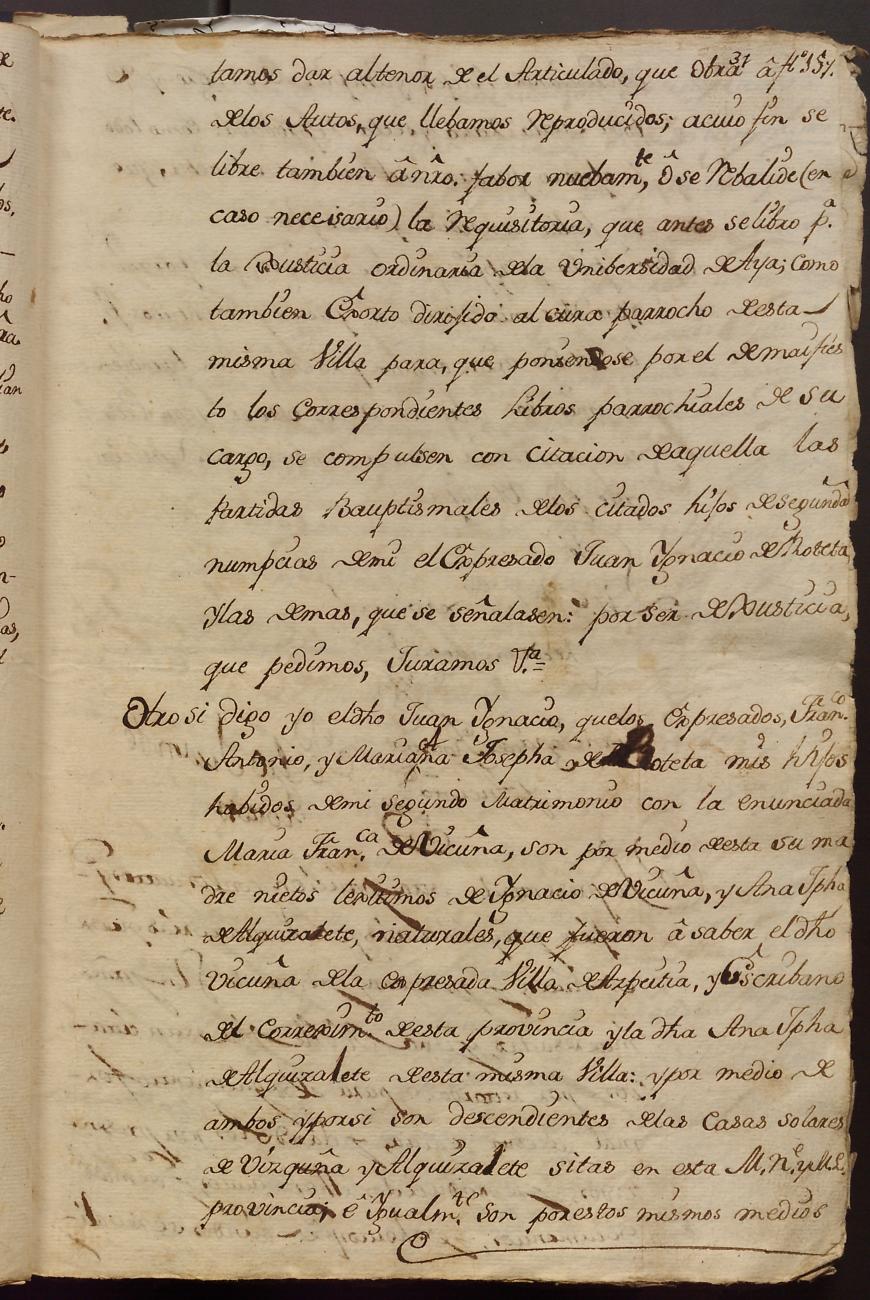 tamos dar altenor de el Articulado, que obra â f.º 151.
delos Autos, que llebamos reproducidos; acuio fin se
libre tambien â nro. fabor nuebam.te, ô se rebalide (en
caso necesario) la requisitoria, que antes se libro p.a
la Justicia ordinaria dela Unibersidad de Aya; como
tambien Exorto dirijido al cura parrocho desta
misma Villa para, que poniendose por el demanifies
to los Correspondientes Libros parrochiales de su
cargo, se compulsen con citacion deaquella las
Partidas Bauptismales delos citados hijos desegundas
numpcias demi el Expresado Juan Ygnacio de Roteta,
ylas demas, que se señalasen: por ser de Justicia,
que pedimos, Juramos V.ta
Otro si digo yo eldho Juan Ygnacio, quelos Expresados, Fran.co
Antonio, y Mariana Josepha de Roteta mis hijos
habidos demi segundo Matrimonio con la enunciada
Maria Fran.ca de Vicuña, son por medio desta su ma
dre nietos lexitimos de Ygnacio de Vicuña, y Ana Jpha
de Alquizalete, naturales, que fueron â saber el dho
Vicuña dela expresada Villa de Azpeitia, y Escribano
del Correxim.to desta provincia yla dha Ana Jpha
de Alquizalete desta misma Villa: ypor medio de
ambos yporsi son descendientes delas Casas solares
de Vizquña y Alquizalete sitas en esta M. N. y M. L.
provincia; ê Ygualm.te son porestos mismos medios